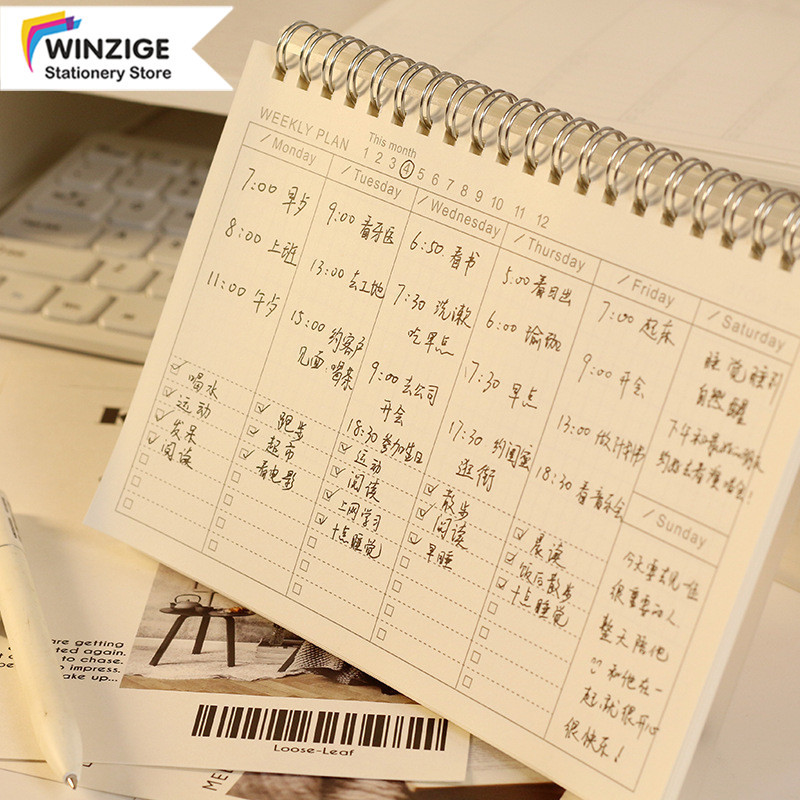 WINZIGE
Stationery Store
WEEKLY PLAN
This month
1 2 3 4 5 6 7 8 9 10 11 12
Monday
7:00 早占
8:00 上班
11:00 午占
喝水
运动
发呆
阅读
Tuesday
9:00 看牙医
13:00 去工地
15:00 约客户
见面 喝茶
跑步
超市
看电影
Wednesday
6:50 看书
7:30 洗漱
吃早点
9:00 去公司
开会
18:30 参加生日
运动
阅读
上网学习
十点睡觉
Thursday
5:00 看日出
6:00 瑜珈
7:30 早点
17:30 约闺蜜
逛街
散步
阅读
早睡
Friday
7:00 起床
9:00 开会
13:00 做计划书
18:30 看音乐会
晨读
饭后散步
十点睡觉
Saturday
睡觉睡到
自然醒
下午和
约去看演唱会!
Sunday
今天要去见一位
很重要的人
整天陪他
和他在一
起,就很开心
很快乐!
are getting
ted again.
to chase.
o impress.
ake up...
Loose-Leaf